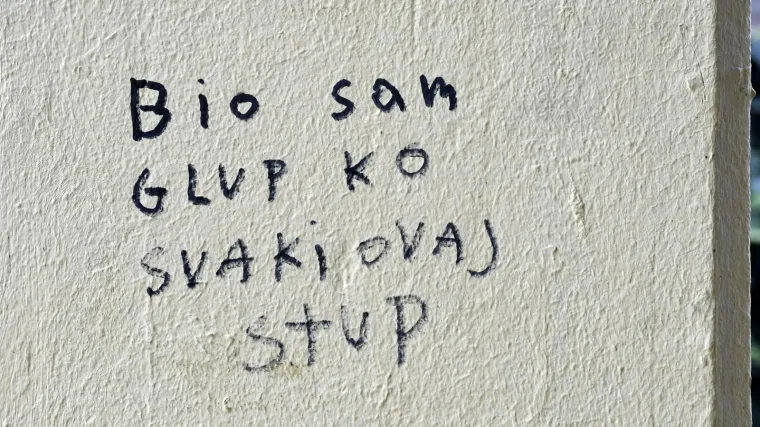 Bio sam
GLUP KO
SVAKi OVAJ
STUP